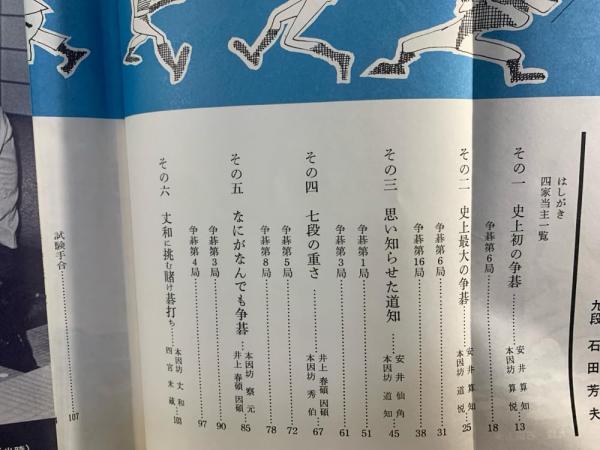 九段 石田芳夫
はしがき
四家当主一覧
その一 史上初の争碁……安井算知 本因坊算悦 13
争碁第6局……18
その二 史上最大の争碁……安井算知 本因坊道悦 25
争碁第6局……31
争碁第16局……38
その三 思い知らせた道知……安井仙角 本因坊道知 45
争碁第1局……51
争碁第3局……61
その四 七段の重さ……井上春碩因碩 本因坊秀伯 67
争碁第5局……72
争碁第8局……78
その五 なにがなんでも争碁……本因坊察元 井上春碩因碩 85
争碁第3局……90
争碁第4局……97
その六 丈和に挑む賭け碁打ち……本因坊丈和 四宮米蔵 103
試験手合……107